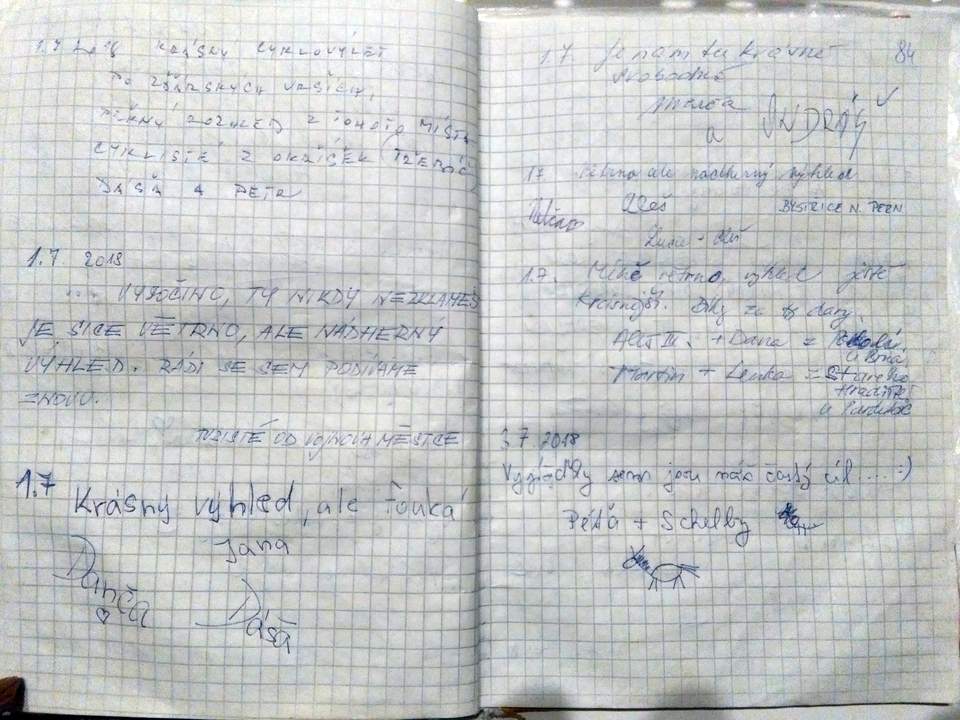 1.7 2018 KRÁSNÝ CYKLOVÝLET
PO ŽĎÁRSKÝCH VRŠÍCH,
PĚKNÝ ROZHLED Z TOHOTO MÍSTA
CYKLISTÉ Z OKŘÍŠEK (TŘEBÍČ)
DÁŠA A PETR
1.7. 2018
... VYSOČINO, TY NIKDY NEZKLAMEŠ
JE SICE VĚTRNO, ALE NÁDHERNÝ
VÝHLED. RÁDI SE SEM PODÍVÁME
ZNOVU.
TURISTÉ OD VOJNOVA MĚSTCE
1.7
Krásný výhled, ale fouká
Jana
Danča
Dáša
84
1.7. Je nám tu krásně
svobodně
a ONDRÁŠ
1.7 větrno ale nádherný výhled
Aleš BYSTŘICE N. PERN
1.7. Méně větrno, výhled ještě
krásnější. Díky za ty dary.
+ Dana =
Martin + Lenka = Starého
Hradiště
u Pardubic
3.7.2018
Vyjížďky sem jsou náš častý cíl.... :)
Péťa + Schelby